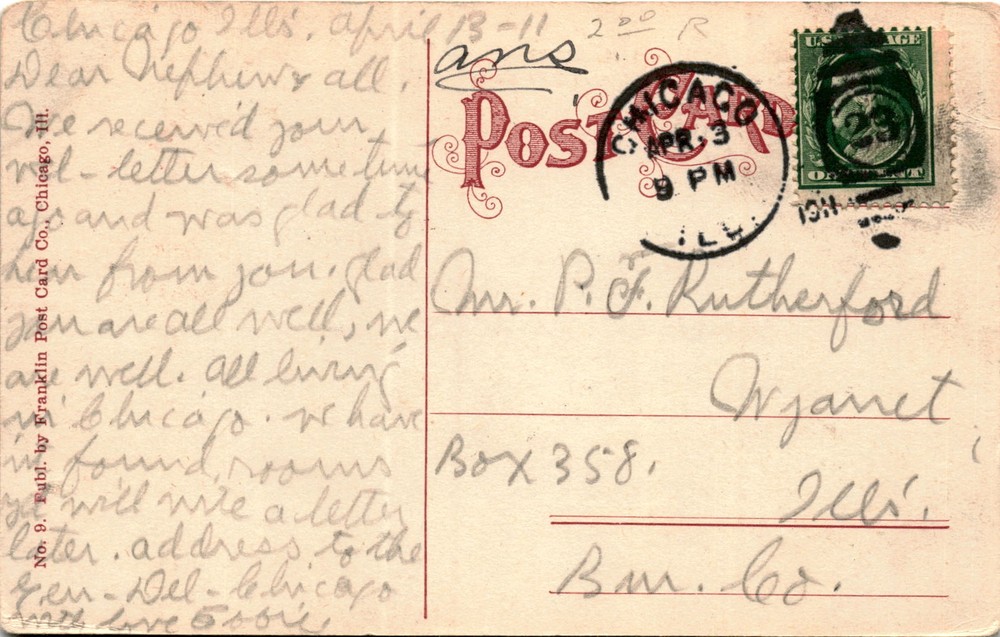 Chicago Ills. April 13-11
2 00 R
ans
Dear Nephew & all.
We received your
wel-letter sometime
ago and was glad to
hear from you. glad
you are all well, we
are well. all living
in Chicago. we have
nt found rooms
yet will write a letter
later. address to the
Gen-Del-Chicago
with love
No. 9. Publ. by Franklin Post Card Co., Chicago, Ill.
POST CARD
CHICAGO
APR. 3
9 PM
1911
ILL
U.S. POSTAGE
23
Mr. P. F. Rutherford
Wyanet
Box 358.
Ills.
Bur. Co.